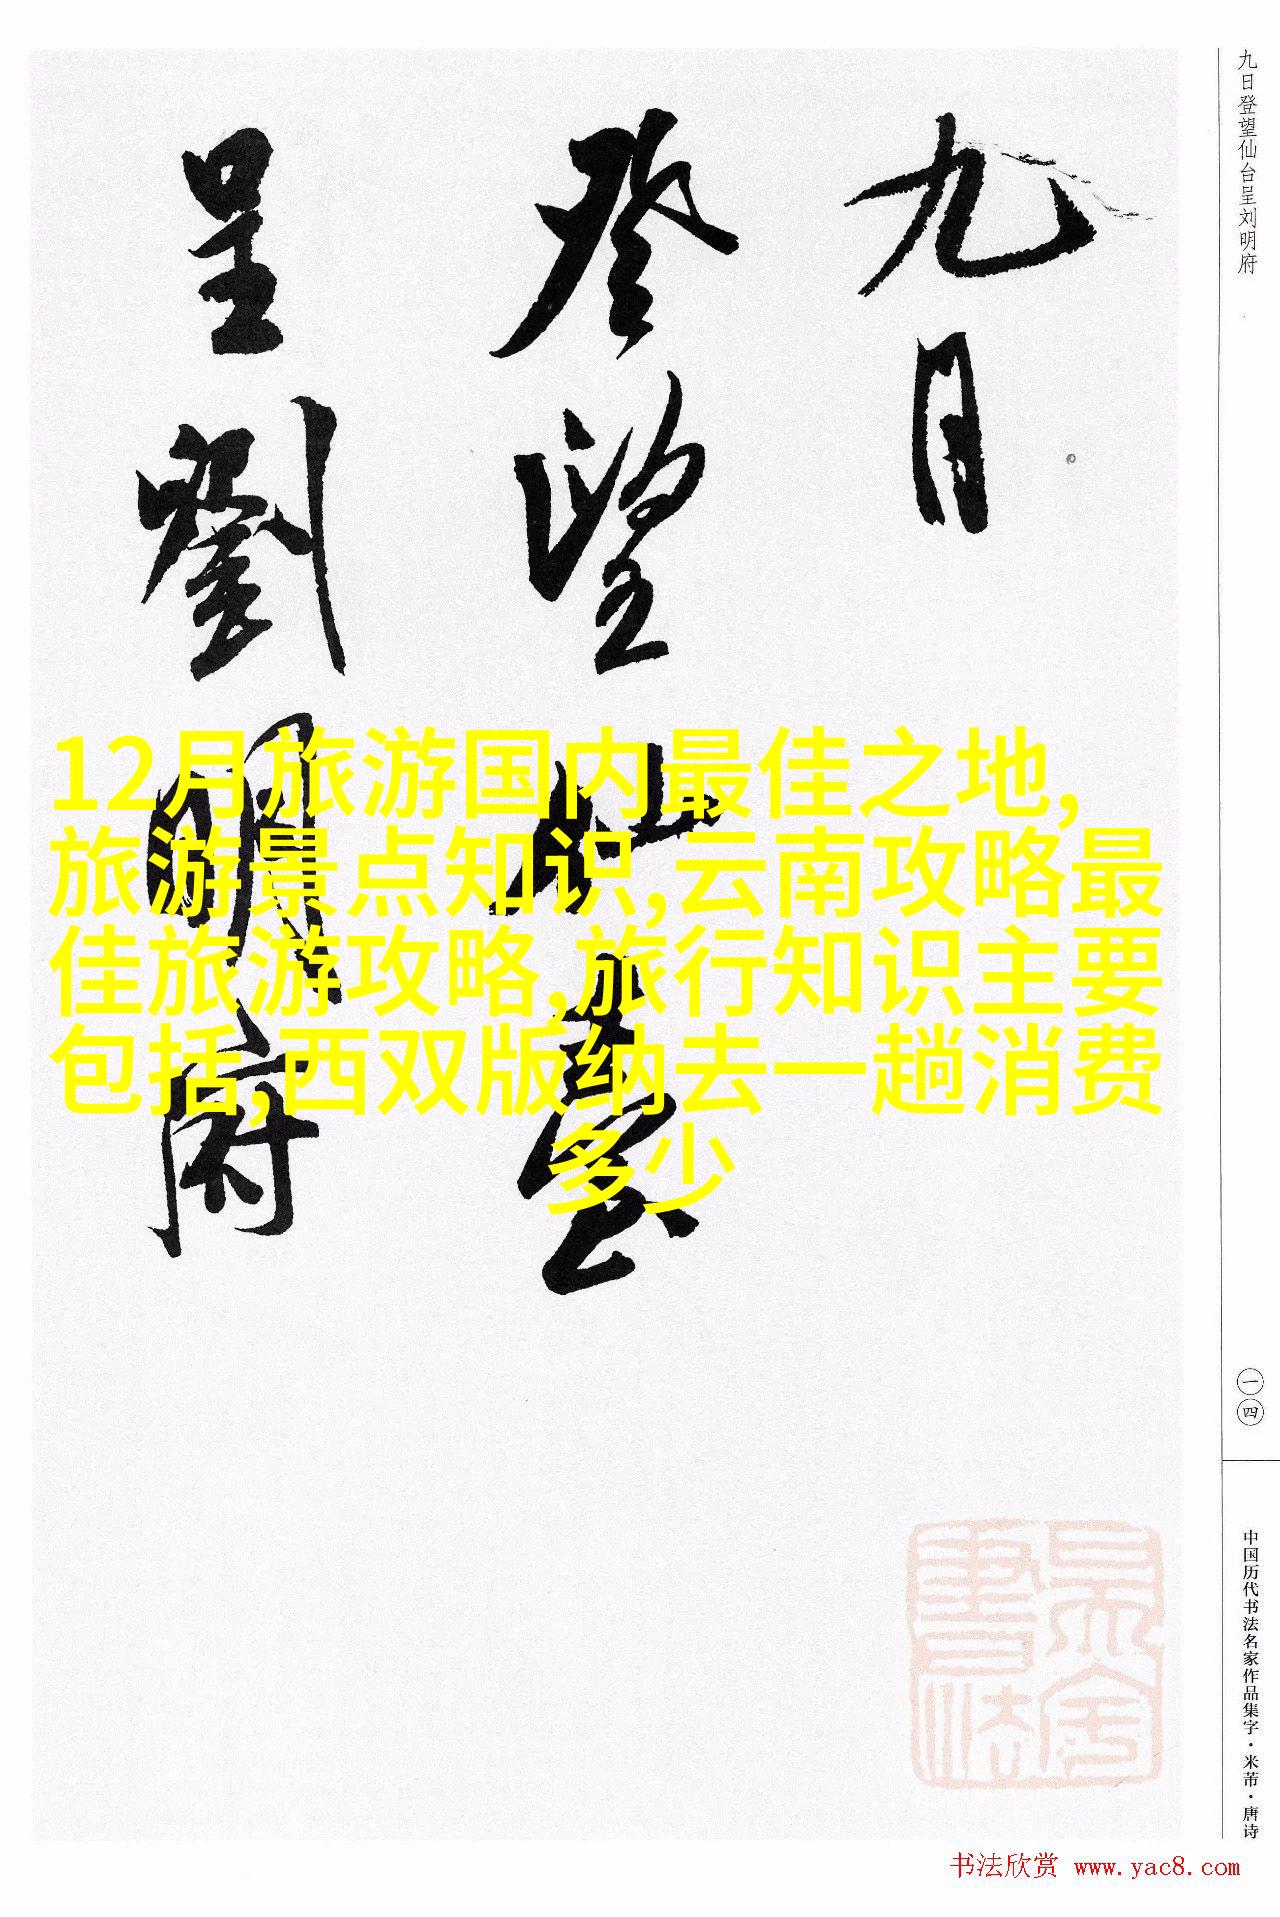 九日
登望仙臺
呈劉明府
12月旅游国内最佳之地,
旅游景点知识,云南攻略最
佳旅游攻略,旅行知识主要
包括,西双版纳去一趟消费
多少
九日登望仙台呈刘明府
一四
中国历代书法名家作品集字·米芾·唐诗
书法欣赏 www.yac8.com